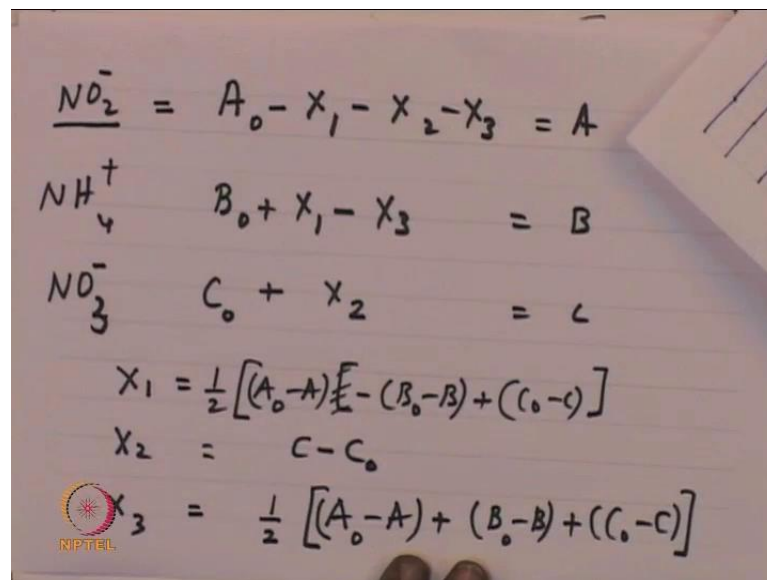 NO₂⁻ = A₀ - X₁ - X₂ - X₃ = A
NH₄⁺ B₀ + X₁ - X₃ = B
NO₃⁻ C₀ + X₂ = C
X₁ = 1/2 [(A₀-A) - (B₀-B) + (C₀-C)]
X₂ = C - C₀
X₃ = 1/2 [(A₀-A) + (B₀-B) + (C₀-C)]
NPTEL